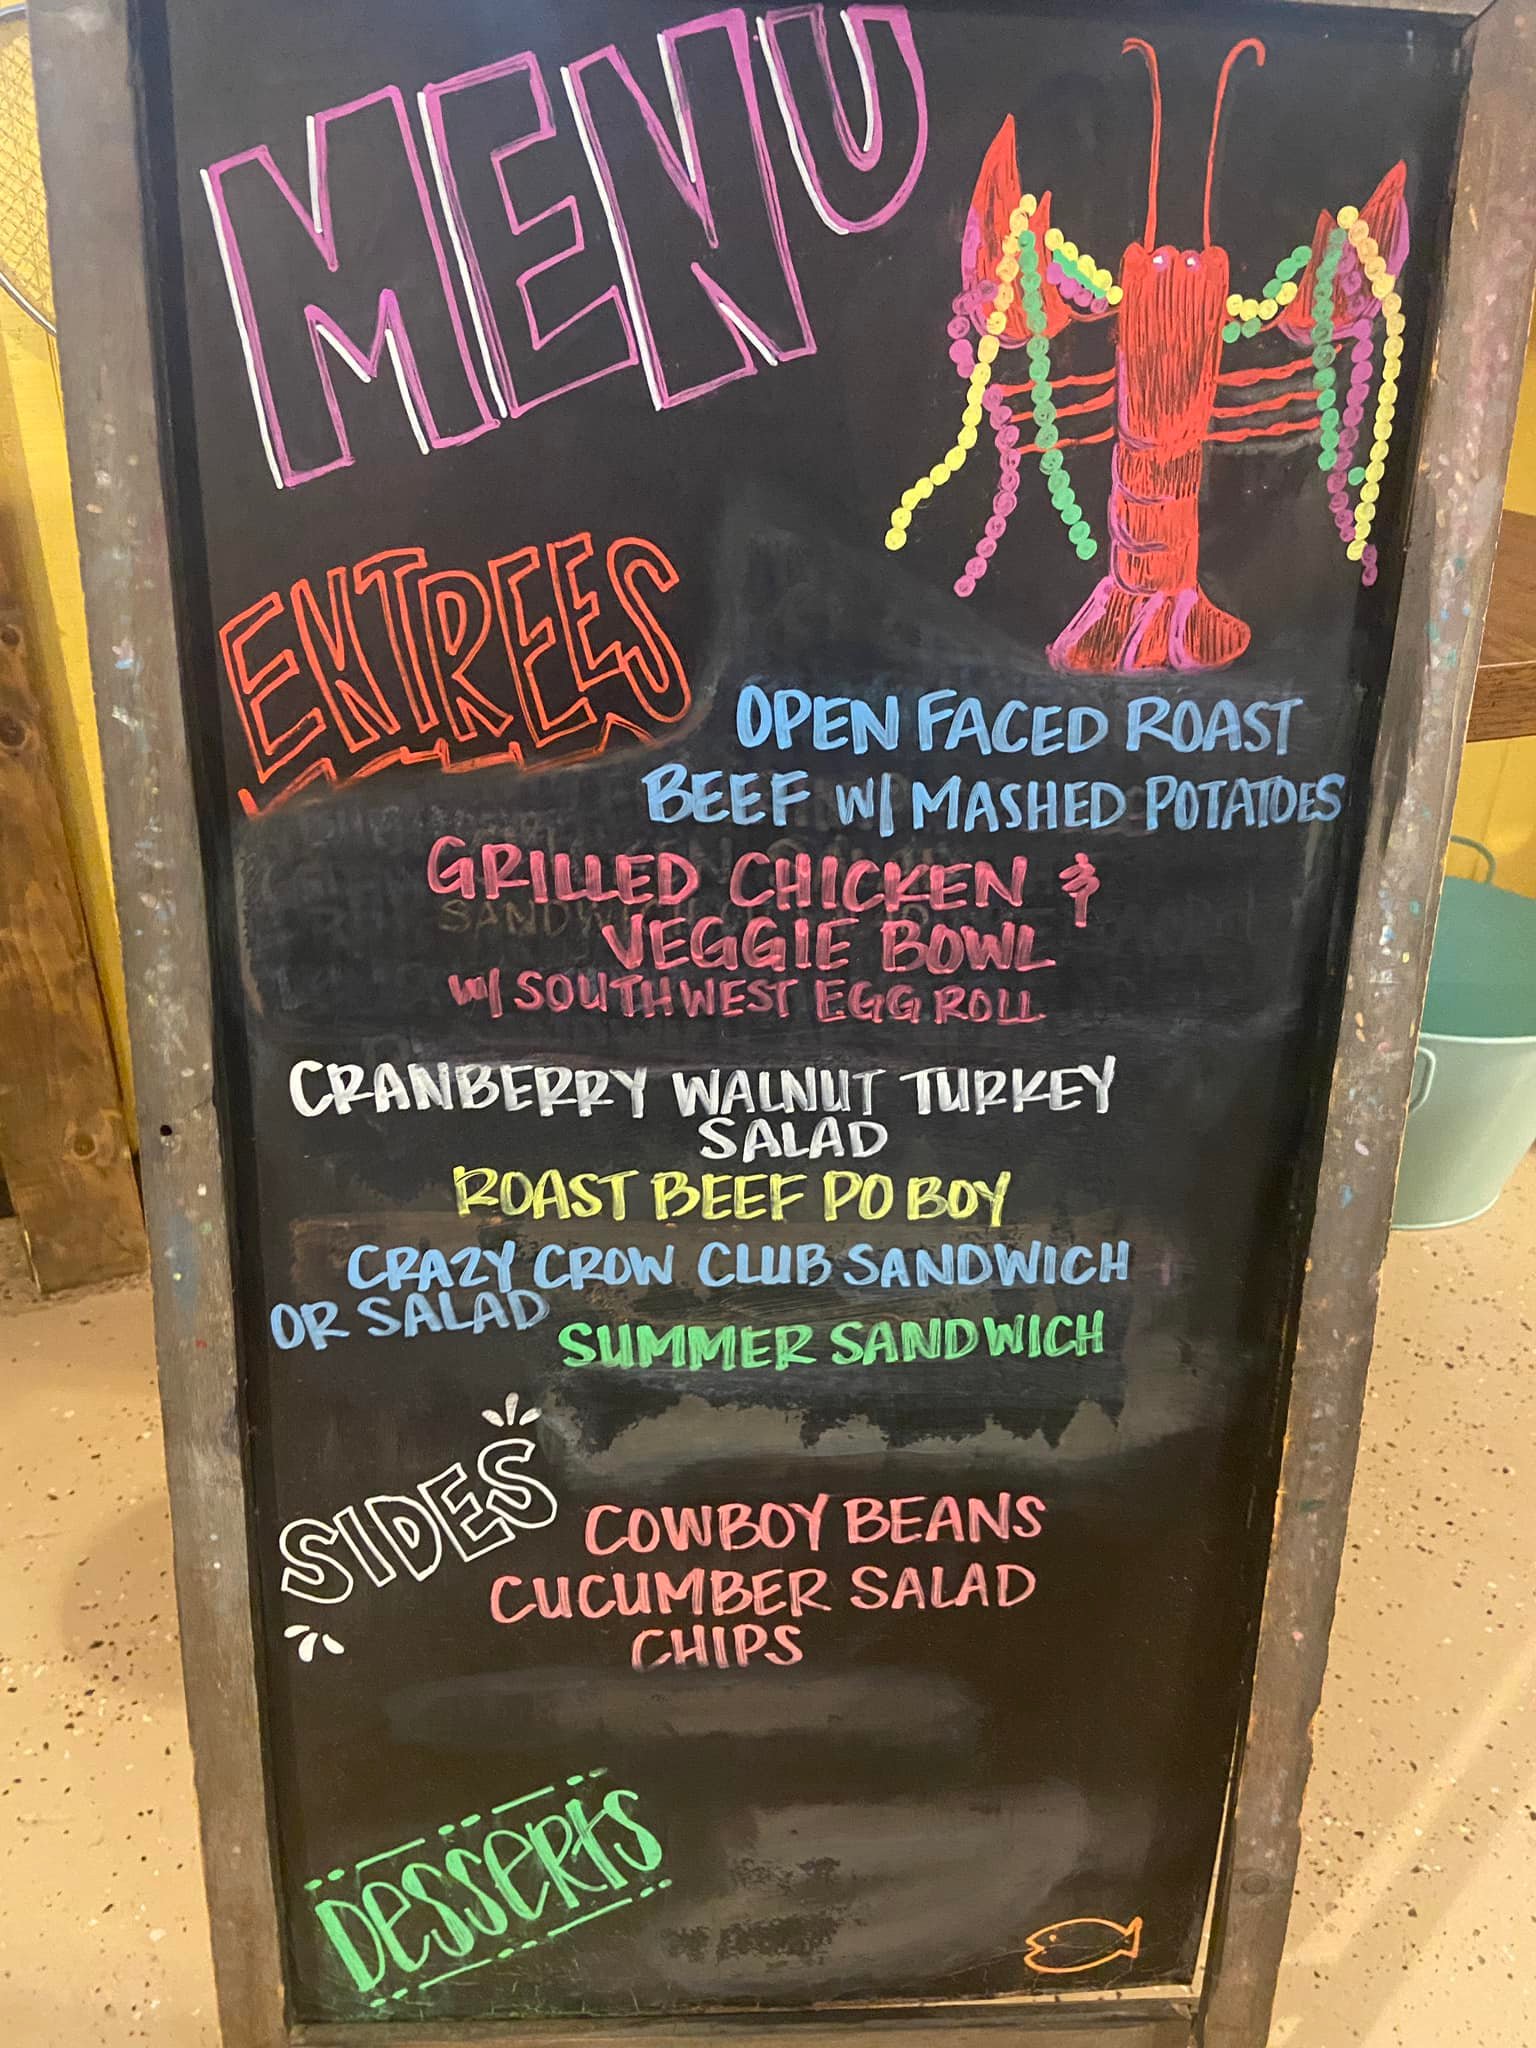 MENU
ENTREES
OPEN FACED ROAST
BEEF W/ MASHED POTATOES
GRILLED CHICKEN &
VEGGIE BOWL
W/ SOUTHWEST EGG ROLL
CRANBERRY WALNUT TURKEY
SALAD
ROAST BEEF PO BOY
CRAZY CROW CLUB SANDWICH
OR SALAD
SUMMER SANDWICH
SIDES
COWBOY BEANS
CUCUMBER SALAD
CHIPS
DESSERTS